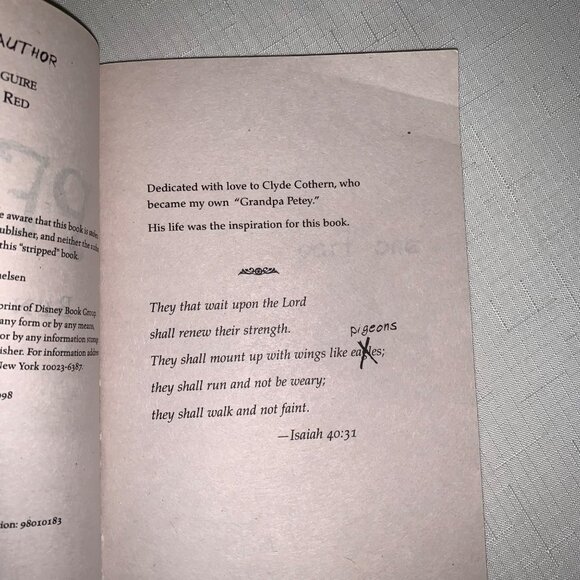 AUTHOR
GUIRE
RED
e aware that this book is stolen
publisher, and neither the author
this "stripped" book.
elsen
print of Disney Book Group.
any form or by any means,
or by any information storage
isher. For information address
New York 10023-6387.
998
ion: 98010183
Dedicated with love to Clyde Cothern, who
became my own "Grandpa Petey."
His life was the inspiration for this book.
They that wait upon the Lord
shall renew their strength.
pigeons
They shall mount up with wings like eagles;
they shall run and not be weary;
they shall walk and not faint.
—Isaiah 40:31